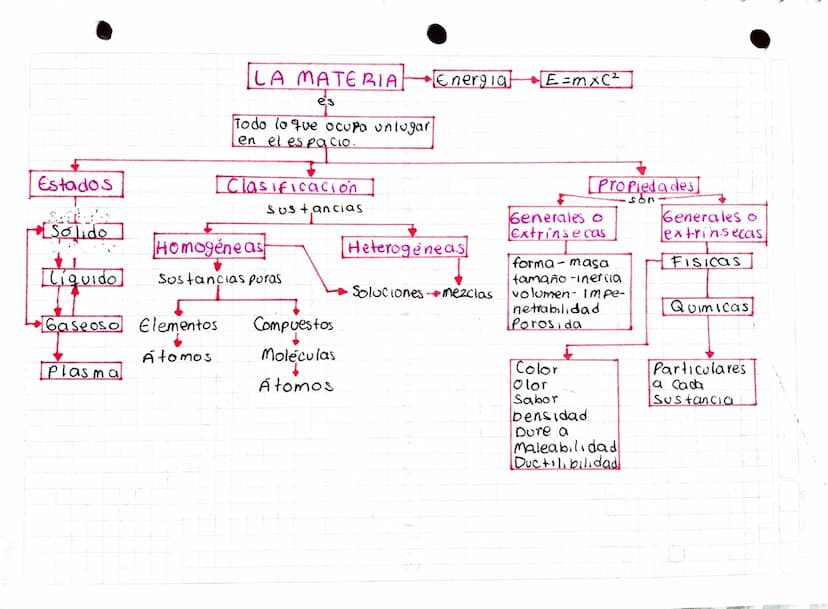 LA MATERIA
Energia
E=mxC²
es
Todo lo que ocupa un lugar
en el espacio.
Estados
Sólido
Líquido
Gaseoso
Plasma
Clasificación
sustancias
Homogéneas
Heterogéneas
Sustancias puras
Soluciones
mezclas
Elementos
Compuestos
Átomos
Moléculas
Átomos
Propiedades
són
Generales o
Extrínsecas
Generales o
extrínsecas
forma-masa
tamaño-inercia
volumen-impe-
netrabilidad
Porosida
Físicas
Químicas
Color
Olor
Sabor
Densidad
Dure a
Maleabilidad
Ductilibilidad
Particulares
a cada
sustancia